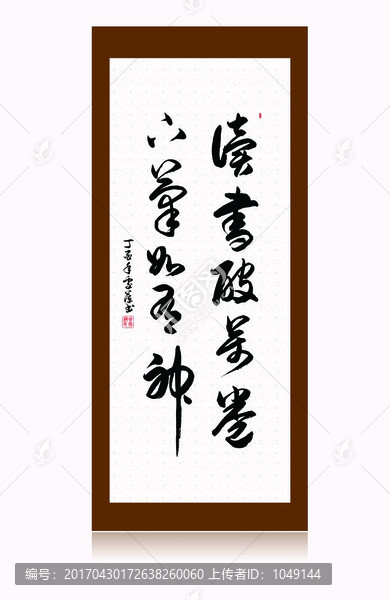 读书破万卷
下笔如有神
编号：20170430172638260060 上传者ID：1049144